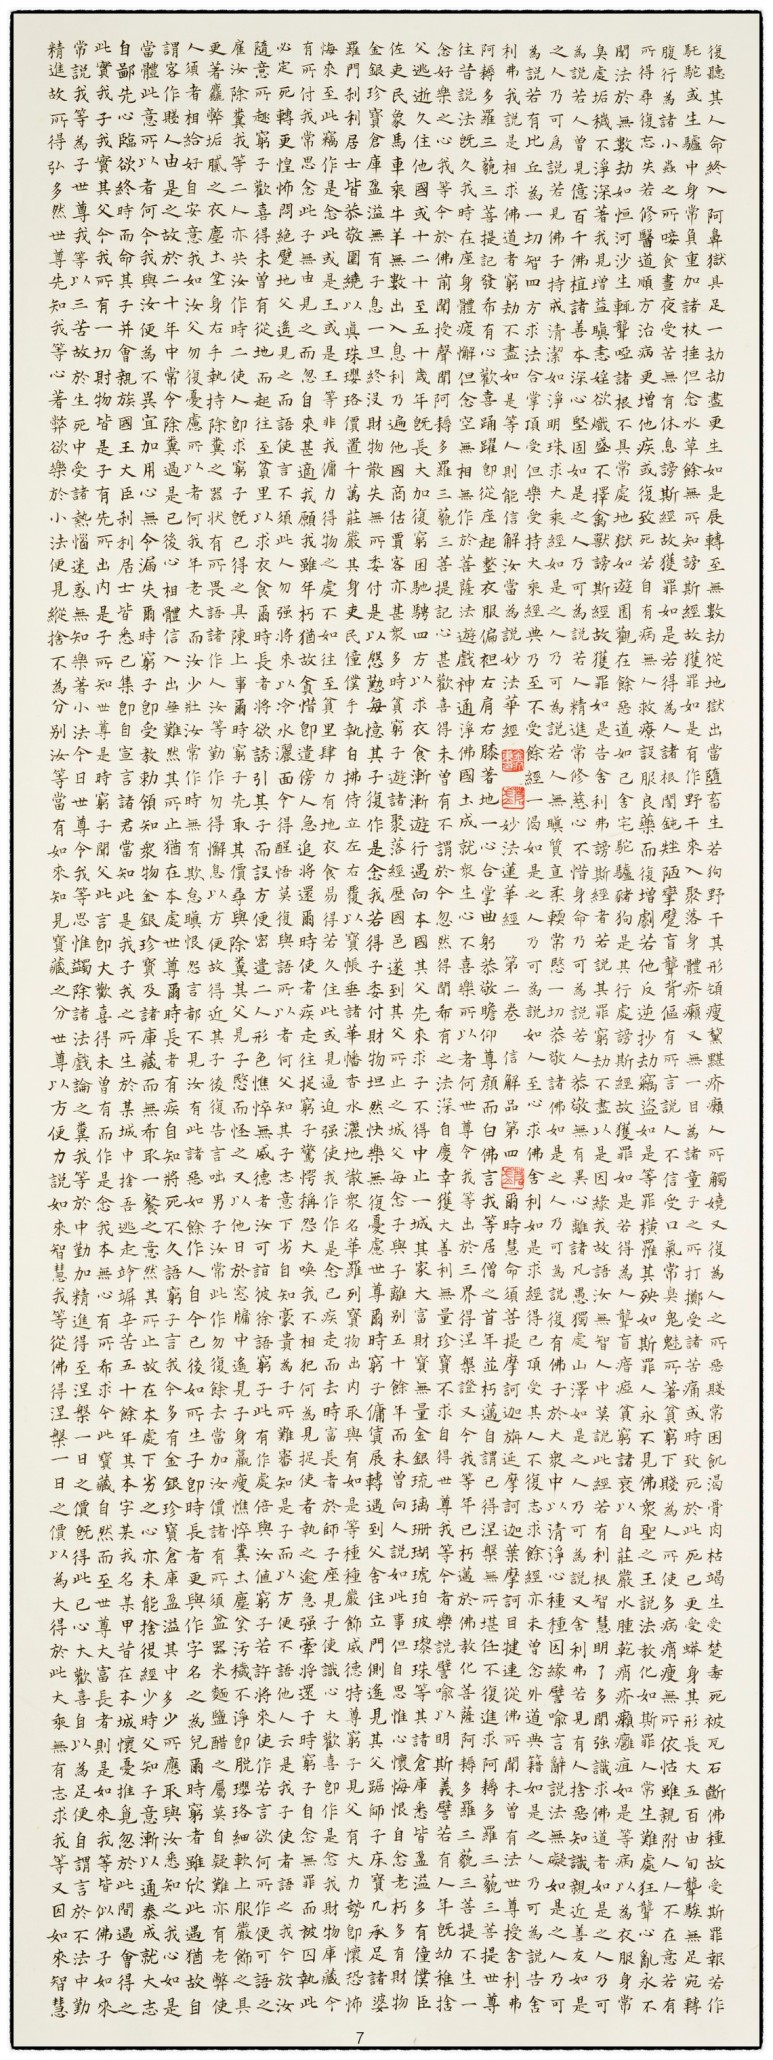 復聽其人命終入阿鼻獄具足一劫劫盡更生如是展轉至無數劫從地獄出當隨畜生若狗野干其形頷瘦黧黮疥癩人所觸嬈又復為人之所惡賤常困飢渴骨肉枯竭生受楚毒死被瓦石斷佛種故受斯罪報若作
馲駝或生驢中身常負重加諸杖捶但念水草餘無所知謗斯經故獲罪如是有作野干來入聚落身體疥癩又無一目為諸童子之所打擲受諸苦痛或時致死於此死已更受蟒身其形長大五百由旬聾騃無足宛轉
腹行為諸小蟲之所唼食晝夜受苦無有休息謗斯經故獲罪如是若得為人諸根闇鈍矬陋攣躄盲聾背傴有所言說人不信受口氣常臭鬼魅所著貧窮下賤為人所使多病痟瘦無所依怙雖親附人人不在意若有
所得尋復忘失若修醫道順方治病更增他疾或復致死若自有病無人救療設服良藥而復增劇若他反逆抄劫竊盜如是等罪橫罹其殃如斯罪人永不見佛眾聖之王說法教化如斯罪人常生難處狂聾心亂永不
聞法於無數劫如恒河沙生輒聾啞諸根不具常處地獄如遊園觀在餘惡道如己舍宅駝驢豬狗是其行處謗斯經故獲罪如是若得為人聾盲瘖瘂貧窮諸衰以自莊嚴水腫乾痟疥癩癰疽如是等病以為衣服身常
臭處垢穢不淨深著我見增益瞋恚婬欲熾盛不擇禽獸謗斯經故獲罪如是告舍利弗謗斯經者若說其罪窮劫不盡以是因緣我故語汝無智人中莫說此經若有利根智慧明了多聞強識求佛道者如是之人乃可
為說若人曾見億百千佛植諸善本深心堅固如是之人乃可為說若人精進常修慈心不惜身命乃可為說若人恭敬無有異心離諸凡愚獨處山澤如是之人乃可為說又舍利弗若見有人捨惡知識親近善友如是
之人乃可為說若見佛子持戒清潔如淨明珠求大乘經如是之人乃可為說若人無瞋質直柔軟常愍一切恭敬諸佛如是之人乃可為說復有佛子於大眾中以清淨心種種因緣譬喻言辭說法無礙如是之人乃可
為說若有比丘為一切智四方求法合掌頂受但樂受持大乘經典乃至不受餘經一偈如是之人乃可為說如人至心求佛舍利如是求經得已頂受其人不復志求餘經亦未曾念外道典籍如是之人乃可為說告舍
利弗我說是相求佛道者窮劫不盡如是等人則能信解汝當為說妙法華經 妙法蓮華經 第二卷 信解品第四 爾時慧命須菩提摩訶迦旃延摩訶迦葉摩訶目犍連從佛所聞未曾有法世尊授舍利弗
阿耨多羅三藐三菩提記發希有心歡喜踊躍即從座起整衣服偏袒右肩右膝著地一心合掌曲躬恭敬瞻仰尊顏而白佛言我等居僧之首年並朽邁自謂已得涅槃無所堪任不復進求阿耨多羅三藐三菩提世尊
往昔說法既久我時在座身體疲懈但念空無相無作於菩薩法遊戲神通淨佛國土成就眾生心不喜樂所以者何世尊令我等出於三界得涅槃證又今我等年已朽邁於佛教化菩薩阿耨多羅三藐三菩提不生一
念好樂之心我等今於佛前聞授聲聞阿耨多羅三藐三菩提記心甚歡喜得未曾有不謂於今忽然得聞希有之法深自慶幸獲大善利無量珍寶不求自得世尊我等今者樂說譬喻以明斯義譬若有人年既幼稚捨
父逃逝久住他國或十二十至五十歲年既長大加復窮困馳騁四方以求衣食漸漸遊行遇向本國其父先來求子不得中止一城其家大富財寶無量金銀琉璃珊瑚琥珀玻瓈珠等其諸倉庫悉皆盈溢多有僮僕臣
佐吏民象馬車乘牛羊無數出入息利乃遍他國商估賈客亦甚眾多時貧窮子遊諸聚落經歷國邑遂到其父所止之城父每念子與子離別五十餘年而未曾向人說如此事但自思惟心懷悔恨自念老朽多有財物
金銀珍寶倉庫盈溢無有子息一旦終沒財物散失無所委付是以慇懃每憶其子復作是念我若得子委付財物坦然快樂無復憂慮世尊爾時窮子傭賃展轉遇到父舍住立門側遙見其父踞師子床寶几承足諸婆
羅門剎利居士皆恭敬圍繞以真珠瓔珞價值千萬莊嚴其身吏民僮僕手執白拂侍立左右覆以寶帳垂諸華幡香水灑地散眾名華羅列寶物出內取與有如是等種種嚴飾威德特尊窮子見父有大力勢即懷恐怖
悔來至此竊作是念此或是王或是王等非我傭力得物之處不如往至貧里肆力有地衣食易得若久住此或見逼迫強使我作作是念已疾走而去時富長者於師子座見子便識心大歡喜即作是念我財物庫藏今
有所付我常思念此子無由見之而忽自來甚適我願我雖年朽猶故貪惜即遣傍人急追將還爾時使者疾走往捉窮子驚愕稱怨大喚我不相犯何為見捉使者執之逾急強牽將還于時窮子自念無罪而被囚執此
必定死轉更惶怖悶絕躄地父遙見之而語使言不須此人勿強將來以冷水灑面令得醒悟莫復與語所以者何父知其子志意下劣自知豪貴為子所難審知是子而以方便不語他人云是我子使者語之我今放汝
隨意所趣窮子歡喜得未曾有從地而起往至貧里以求衣食爾時長者將欲誘引其子而設方便密遣二人形色憔悴無威德者汝可詣彼徐語窮子此有作處倍與汝值窮子若許將來使作若言欲何所作便可語之
雇汝除糞我等二人亦共汝作時二使人即求窮子既已得之具陳上事爾時窮子先取其價尋與除糞其父見子愍而怪之又以他日於窗牖中遙見子身羸瘦憔悴糞土塵坌污穢不淨即脫瓔珞細軟上服嚴飾之具
更著麤弊垢膩之衣塵土坌身右手執持除糞之器狀有所畏語諸作人汝等勤作勿得懈息以方便故得近其子後復告言咄男子汝常此作勿復餘去當加汝價諸有所須盆器米麵鹽醋之屬莫自疑難亦有老弊使
人須者相給好自安意我如汝父勿復憂慮所以者何我年老大而汝少壯汝常作時無有欺怠瞋恨怨言都不見汝有此諸惡如餘作人自今已後如所生子即時長者更與作字名之為兒爾時窮子雖欣此遇猶故自
謂客作賤人由是之故於二十年中常令除糞過是已後心相體信入出無難然其所止猶在本處世尊爾時長者有疾自知將死不久語窮子言我今多有金銀珍寶倉庫盈溢其中多少所應取與汝悉知之我心如是
當體此意所以者何今我與汝便為不異宜加用心無令漏失爾時窮子即受教勅領知眾物金銀珍寶及諸庫藏而無希取一餐之意然其所止故在本處下劣之心亦未能捨復經少時父知子意漸以通泰成就大志
自鄙先心臨欲終時而命其子并會親族國王大臣剎利居士皆悉已集即自宣言諸君當知此是我子我之所生於某城中捨吾逃走竛竮辛苦五十餘年其本字某我名某甲昔在本城懷憂推覓忽於此間遇會得之
此實我子我實其父今我所有一切財物皆是子有先所出內是子所知世尊是時窮子聞父此言即大歡喜得未曾有而作是念我本無心有所希求今此寶藏自然而至世尊大富長者則是如來我等皆似佛子如來
常說我等為子世尊我等以三苦故於生死中受諸熱惱迷惑無知樂著小法今日世尊令我等思惟蠲除諸法戲論之糞我等於中勤加精進得至涅槃一日之價既得此已心大歡喜自以為足便自謂言於佛法中勤
精進故所得弘多然世尊先知我等心著弊欲樂於小法便見縱捨不為分別汝等當有如來知見寶藏之分世尊以方便力說如來智慧我等從佛得涅槃一日之價以為大得於此大乘無有志求我等又因如來智慧
7